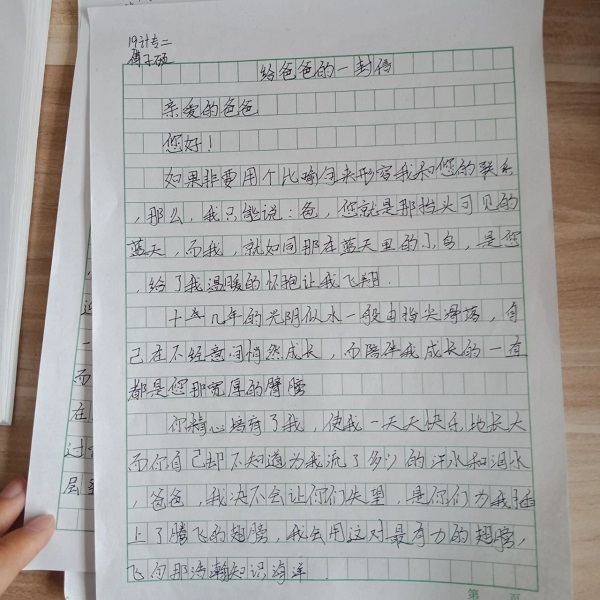 19计专二
傅子硕
给爸爸的一封信
亲爱的爸爸
您好！
如果非要用个比喻句来形容我和您的联系
，那么，我只能说：爸，您就是那抬头可见的
蓝天，而我，就如同那在蓝天里的小鸟，是您
，给了我温暖的怀抱让我飞翔.
十五几年的光阴似水一般由指尖滑落，自
己在不经意间悄然成长，而陪伴我成长的一直
都是您那宽厚的臂膀
你精心培育了我，使我一天天快乐地长大
而你自己却不知道为我流了多少的汗水和泪水
，爸爸，我决不会让你们失望，是你们为我插
上了腾飞的翅膀，我会用这对最有力的翅膀，
飞向那浩瀚知识海洋
第 页
而
在
过
层